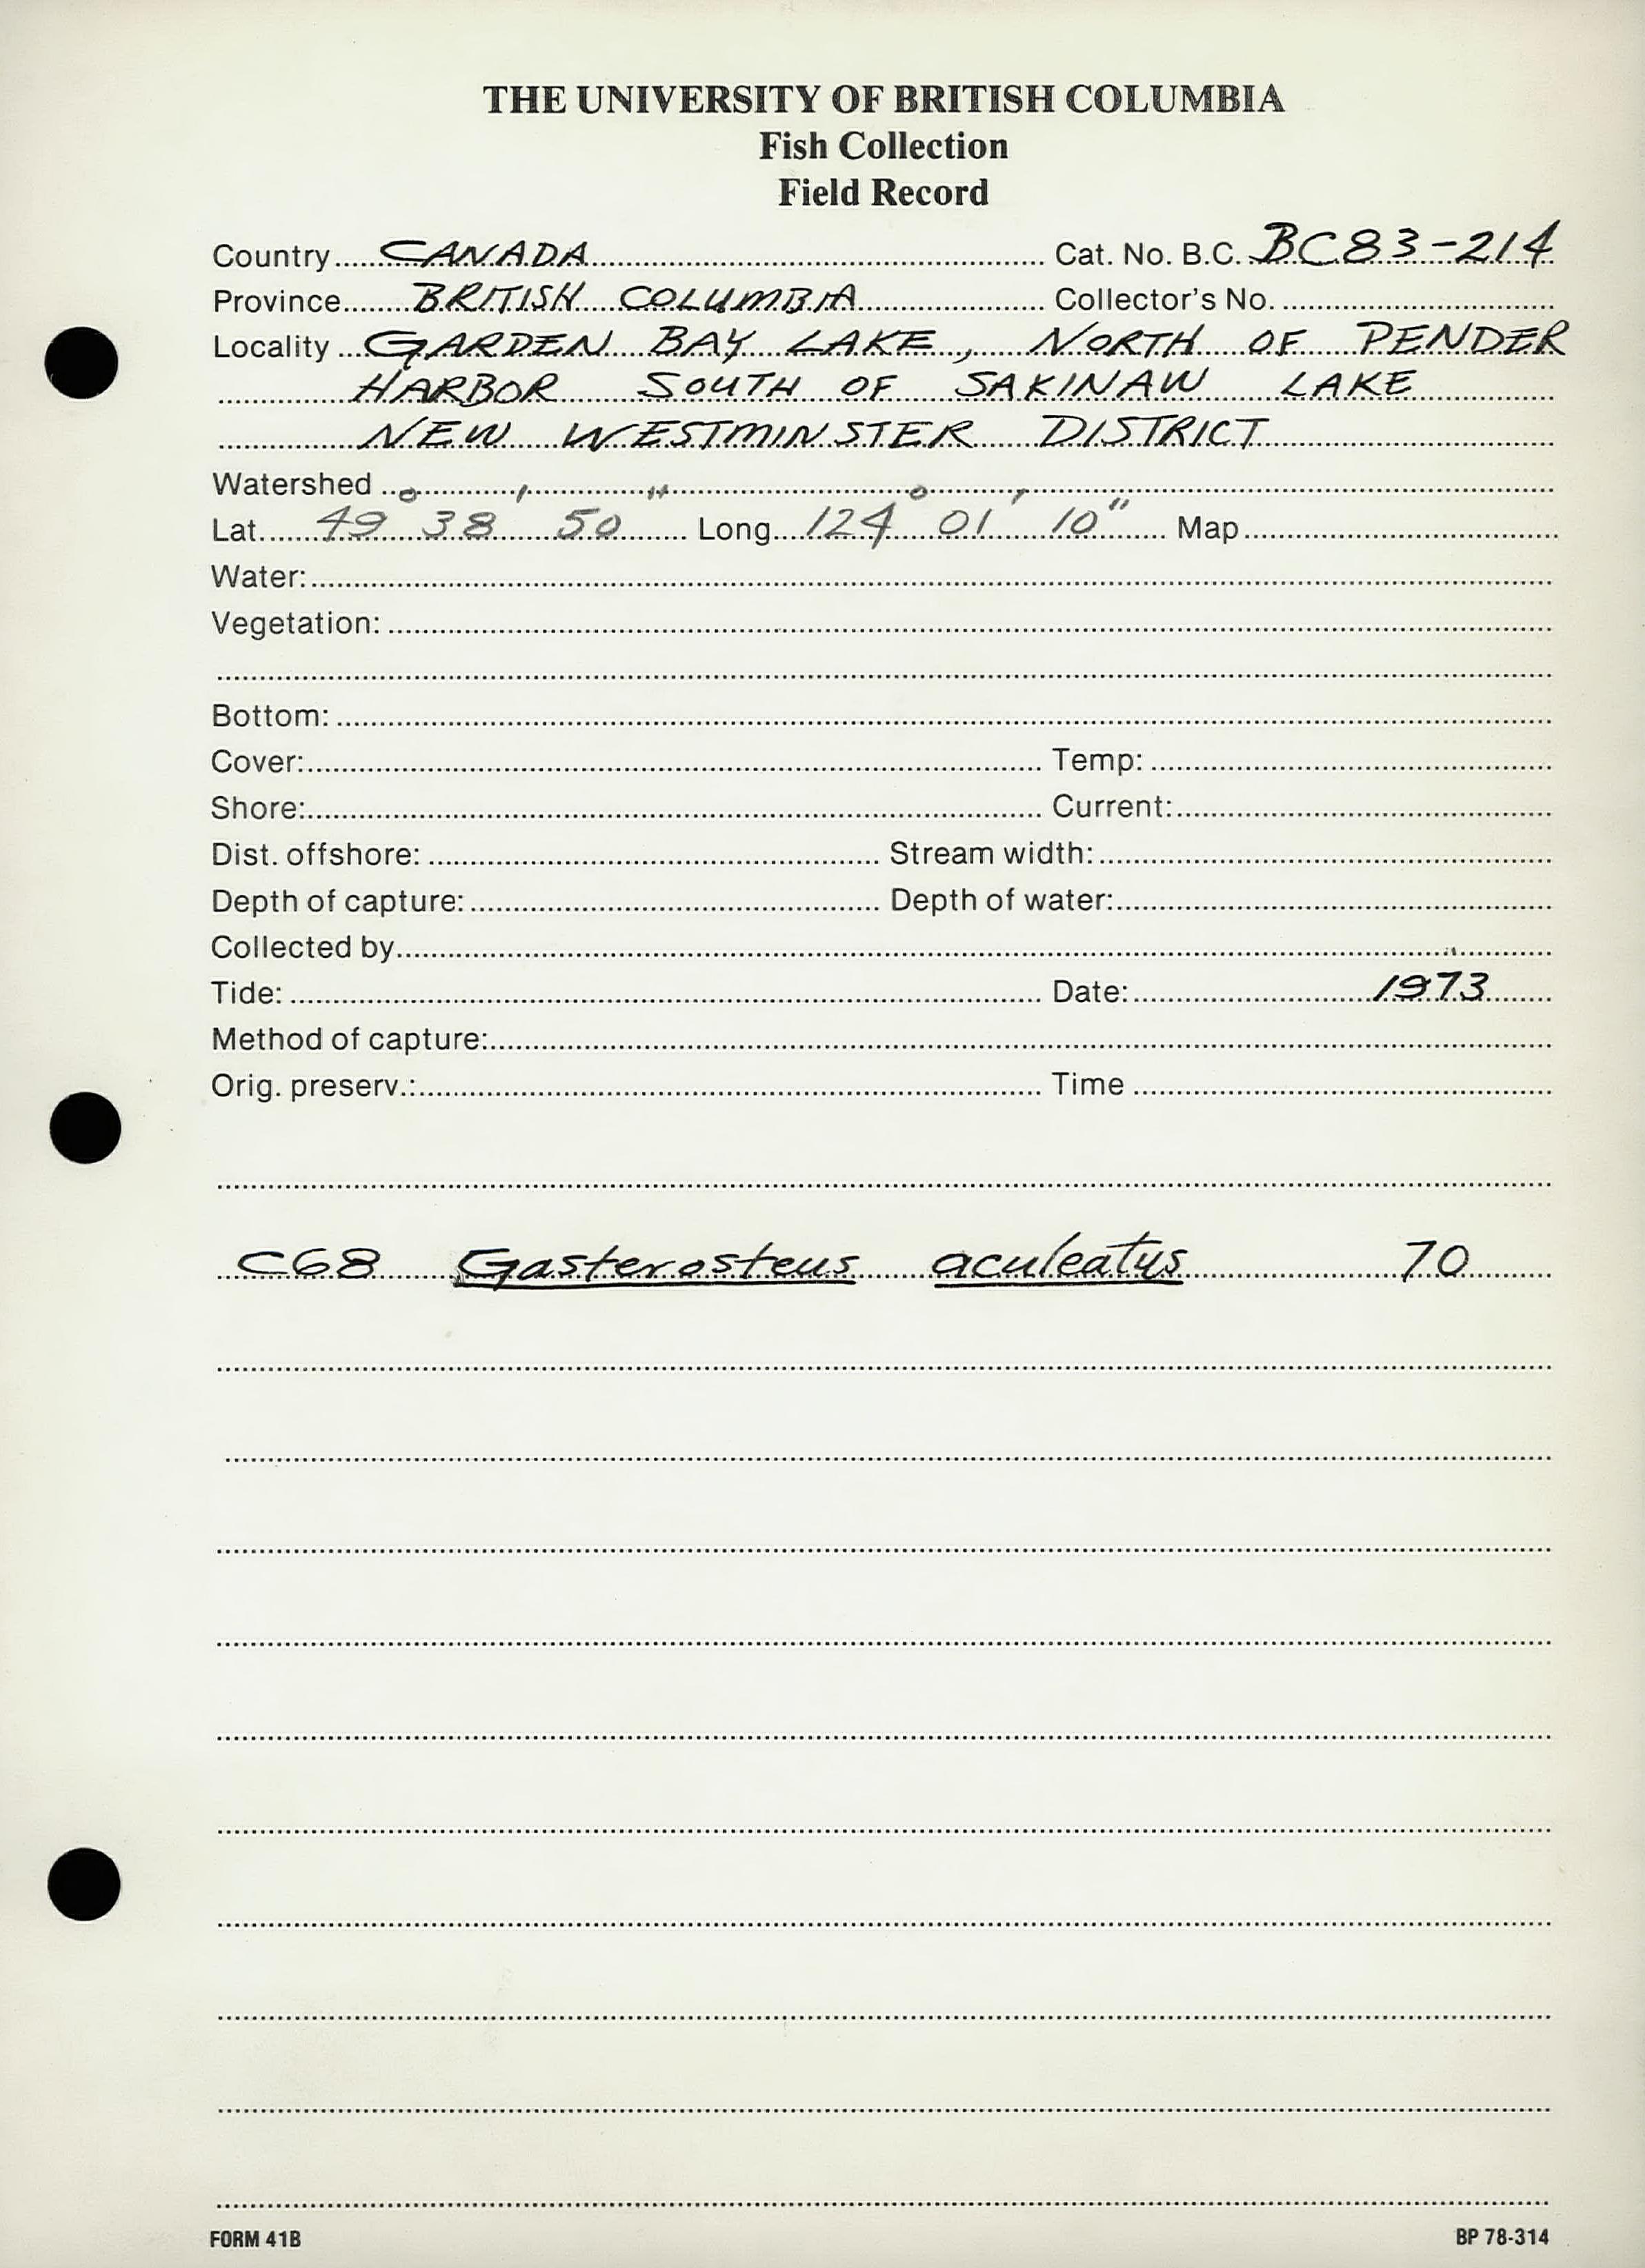 THE UNIVERSITY OF BRITISH COLUMBIA
Fish Collection
Field Record
Country CANADA Cat. No. B.C. BC83-214
Province BRITISH COLUMBIA Collector's No.
Locality GARDEN BAY LAKE, NORTH OF PENDER
HARBOR SOUTH OF SAKINAW LAKE
NEW WESTMINSTER DISTRICT
Watershed
Lat. 49° 38' 50" Long. 124° 01' 10" Map
Water:
Vegetation:
Bottom:
Cover: Temp:
Shore: Current:
Dist. offshore: Stream width:
Depth of capture: Depth of water:
Collected by
Tide: Date: 1973
Method of capture:
Orig. preserv.: Time
C68 Gasterosteus aculeatus 70
FORM 41B BP 78-314